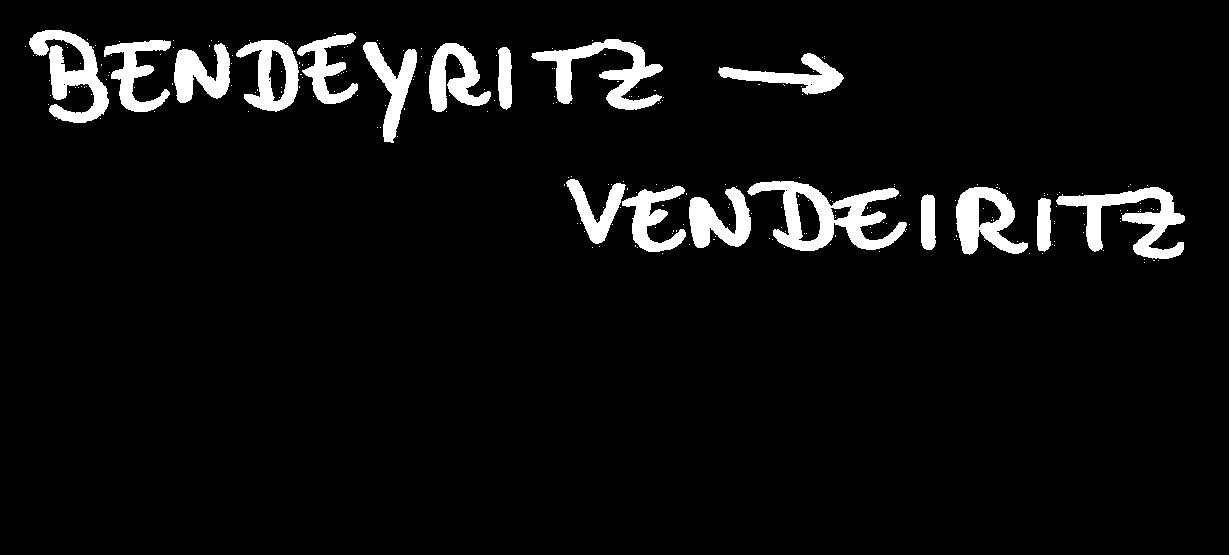 BENDEYRITZ →
VENDEIRITZ